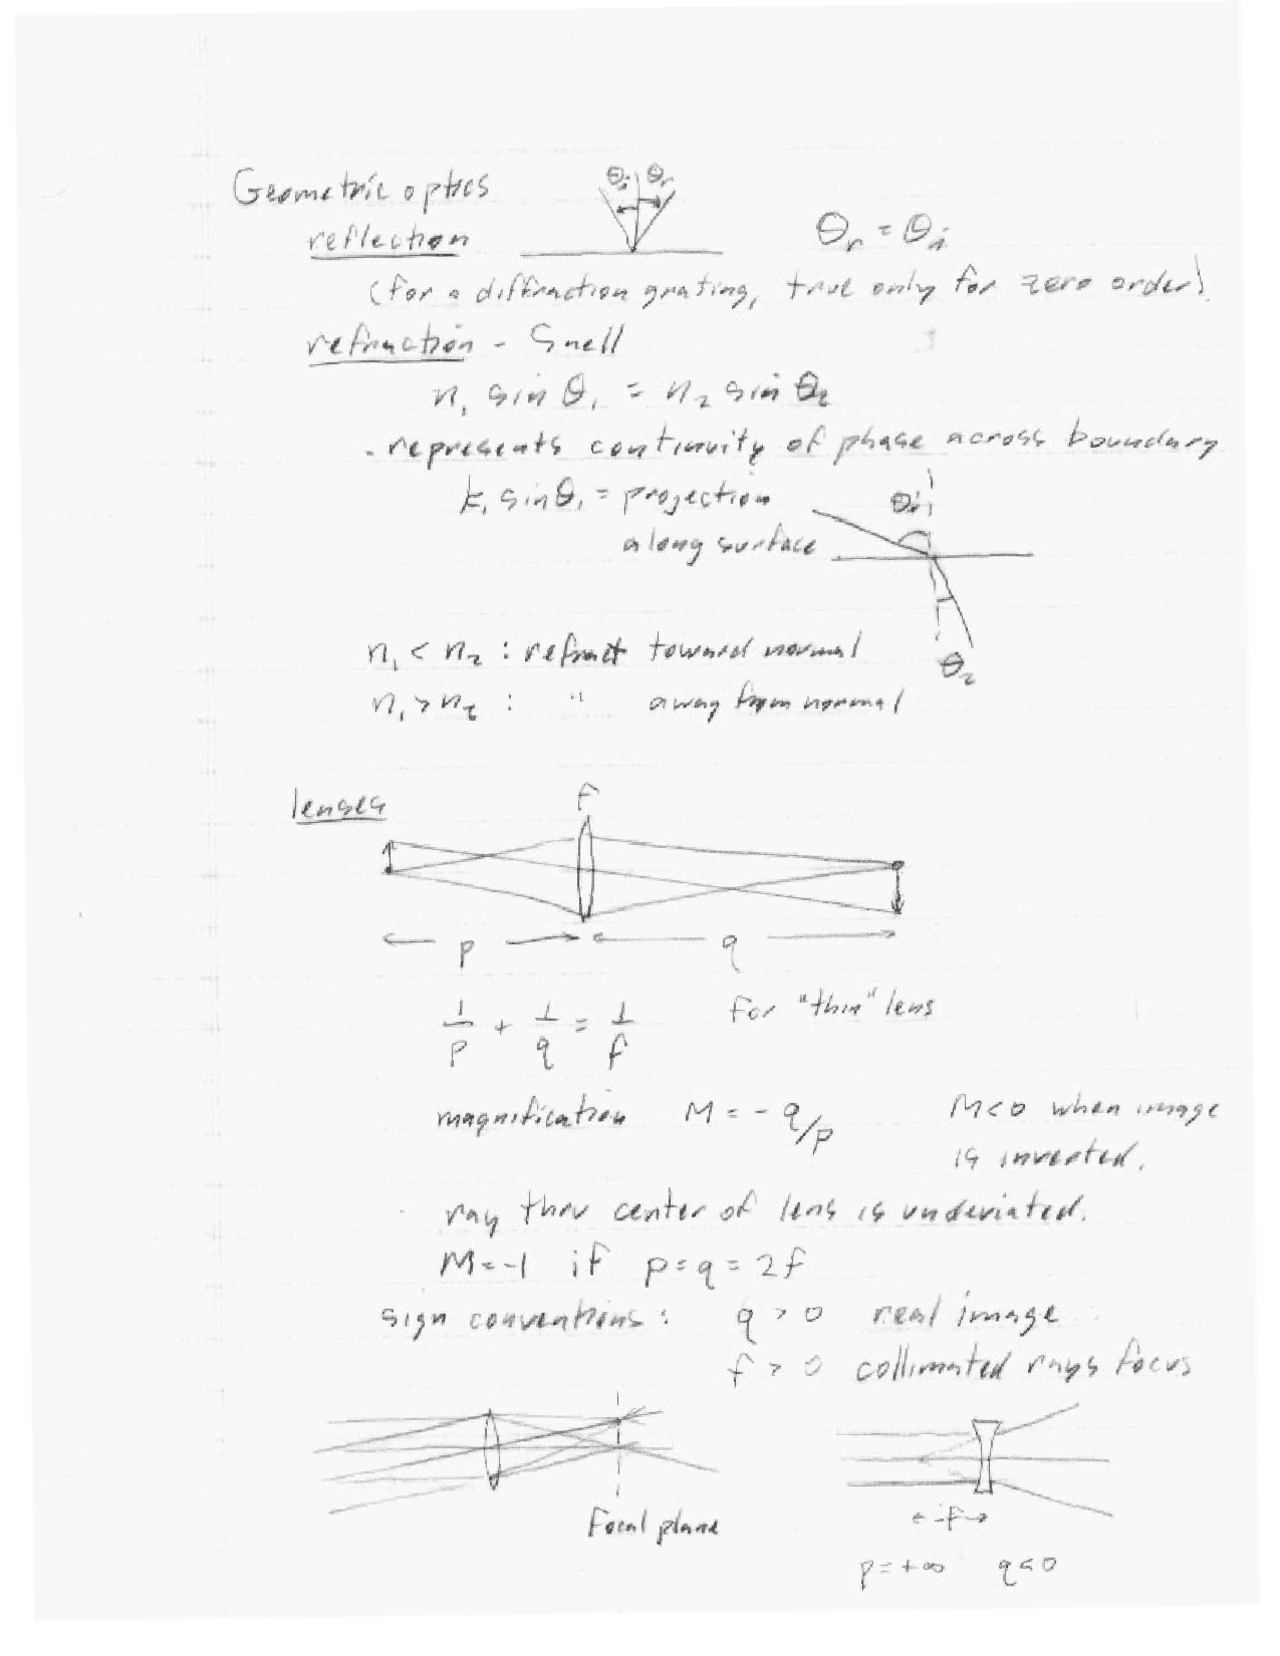 Geometric optics
θi θr
reflection
θr = θi
(for a diffraction grating, true only for zero order)
refraction - Snell
n1 sin θ1 = n2 sin θ2
- represents continuity of phase across boundary
k1 sin θ1 = projection
along surface
θi
θ2
n1 < n2 : refract toward normal
n1 > n2 : " away from normal
lenses
f
p q
1/p + 1/q = 1/f for "thin" lens
magnification M = - q/p M<0 when image
is inverted.
ray thru center of lens is undeviated.
M=-1 if p=q=2f
sign conventions: q > 0 real image
f > 0 collimated rays focus
focal plane
-f
p=+∞ q<0